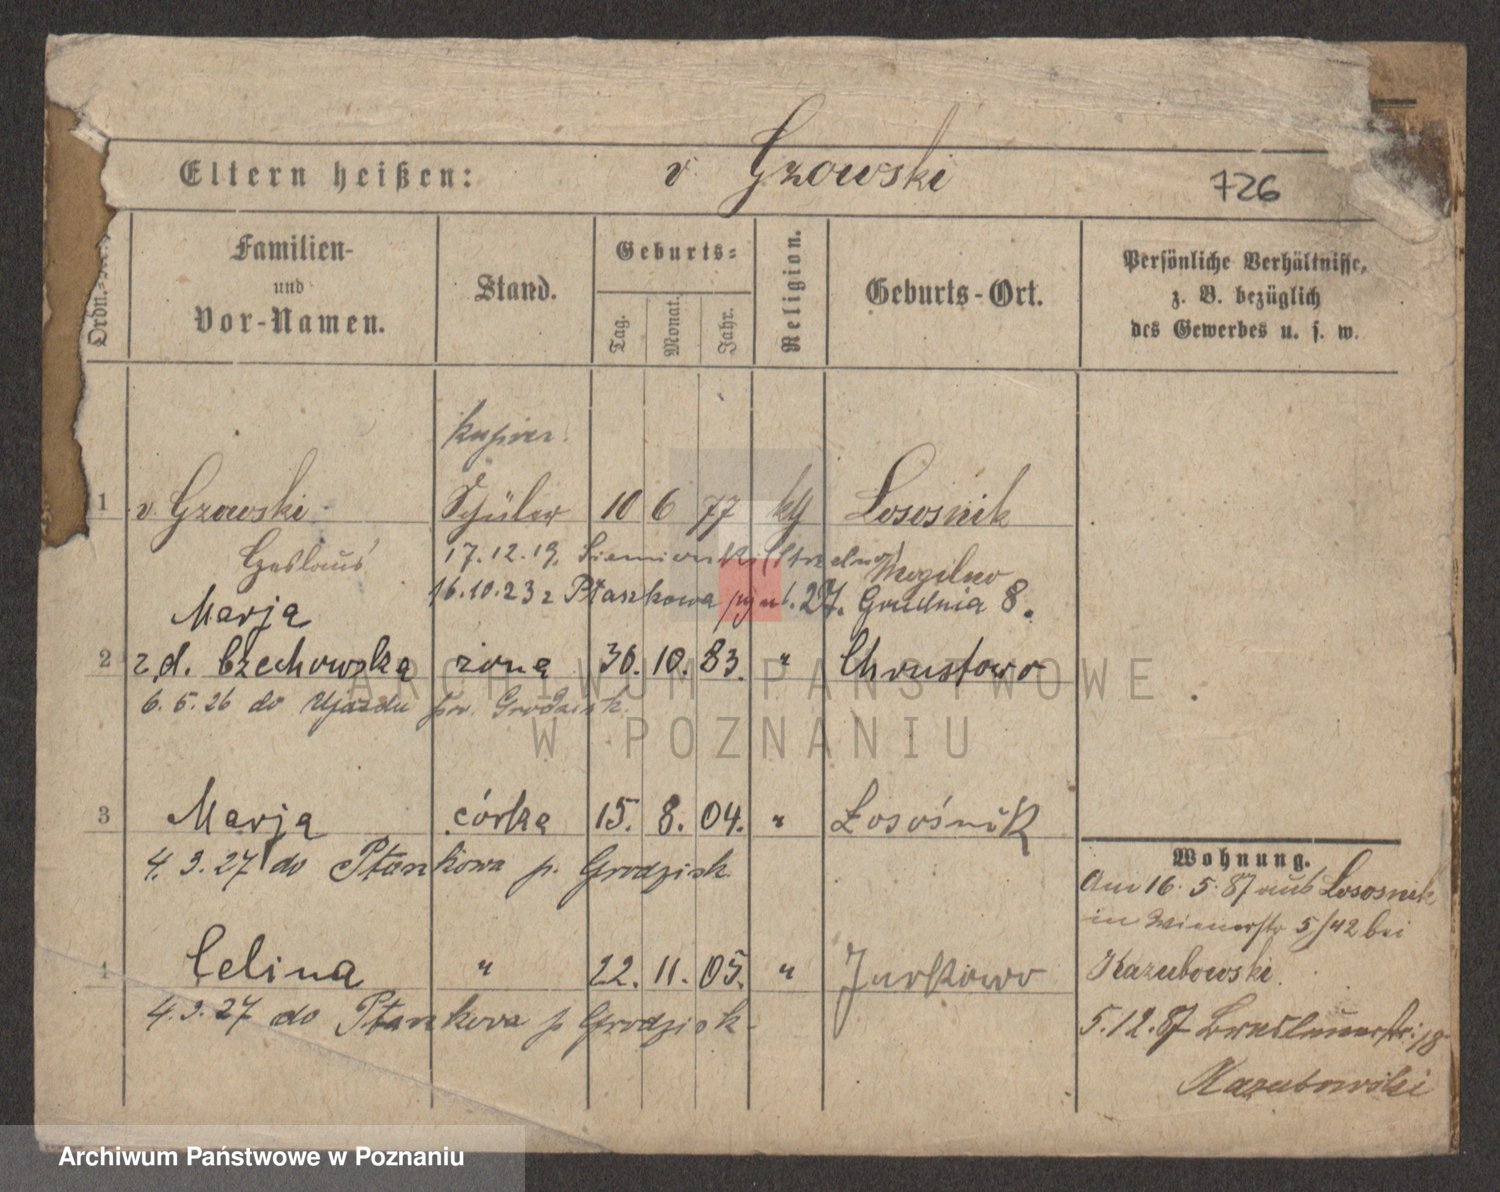 Eltern heißen: v Gzowski 726
Ordn.
Familien-
und
Vor-Namen.
Stand.
Geburts-
Tag.
Monat.
Jahr.
Religion.
Geburts-Ort.
Persönliche Verhältnisse,
z. B. bezüglich
des Gewerbes u. s. w.
kupiec.
1 v. Gzowski Schüler 10 6 77 kth Lososnik
Czeslaus 17.12.19. Siemionki (Strzelno) Mogilno
16.10.23 z Ptaszkowa 27. Grudnia 8.
Marja
2 z d. Czechowska żona 30. 10. 83. " Chrustowo
6. 5. 26 do Ujazdu pow. Grodzisk.
3 Marja córka 15. 8. 04. " Łosośnik
4. 3. 27 do Ptaszkowa p. Grodzisk
4 Celina " 22. 11. 05. " Jurkowo
4. 3. 27 do Ptaszkowa p Grodzisk
Wohnung.
Am 16. 5. 87 aus Lososnik
in Wienerstr 5/42 bei
Kazubowski.
5. 12. 87 Breslauerstr. 18
Kazubowski
ARCHIWUM PAŃSTWOWE
W POZNANIU
Archiwum Państwowe w Poznaniu